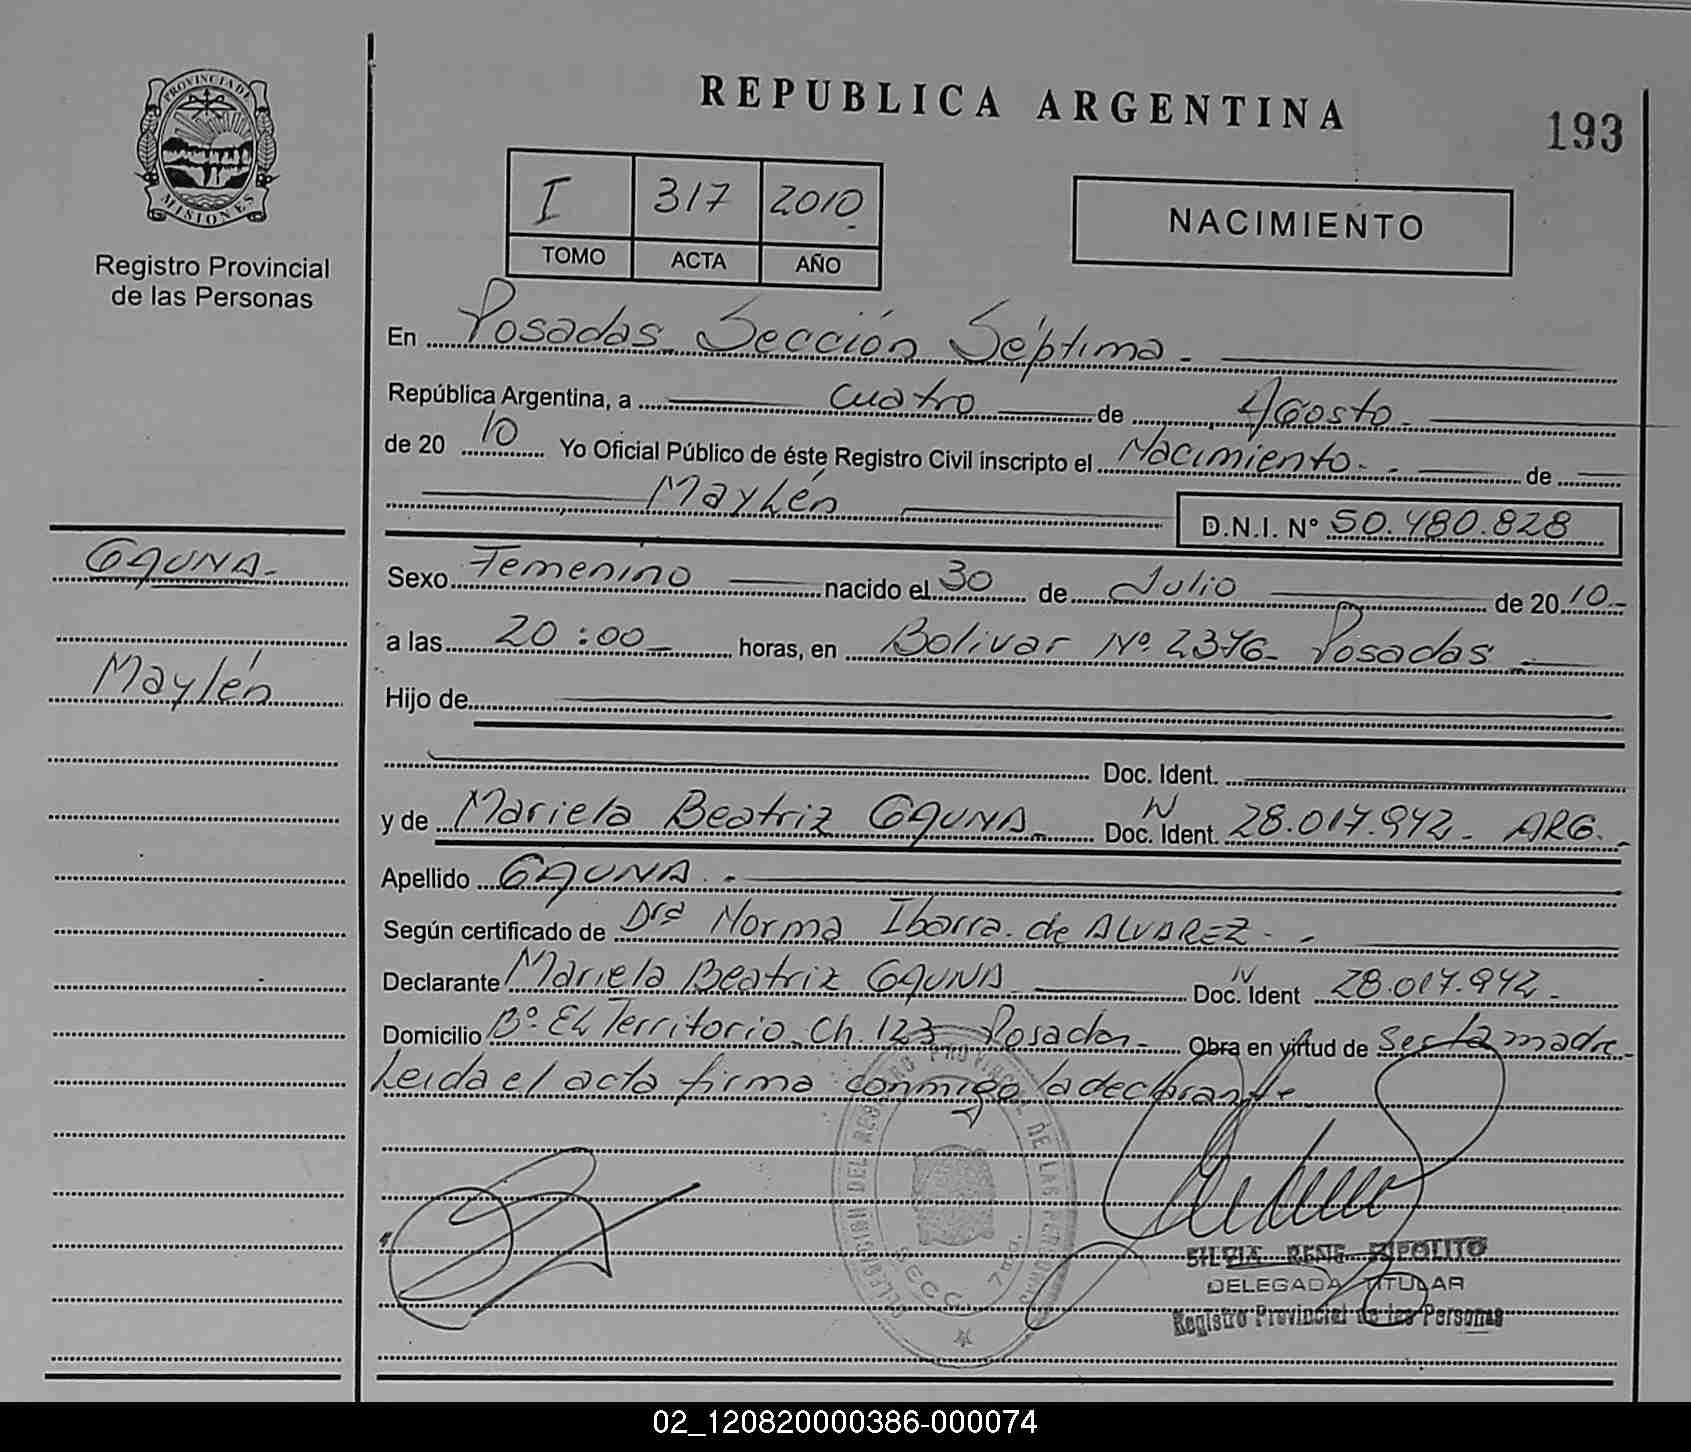 REPUBLICA ARGENTINA
193
PROVINCIA DE
MISIONES
Registro Provincial
de las Personas
I 317 2010
TOMO ACTA AÑO
NACIMIENTO
En Posadas Sección Séptima.
República Argentina, a cuatro de Agosto.
de 20 10 Yo Oficial Público de éste Registro Civil inscripto el Nacimiento. de
Maylén
D.N.I. N° 50.480.828
GAUNA.
Maylén
Sexo Femenino nacido el 30 de Julio de 20 10.-
a las 20:00 horas, en Bolivar Nº 2376- Posadas
Hijo de
Doc. Ident.
y de Mariela Beatriz GAUNA. Doc. Ident. N 28.017.942. ARG.
Apellido GAUNA.-
Según certificado de Drª Norma Ibarra de ALVAREZ.-
Declarante Mariela Beatriz GAUNA Doc. Ident N 28.017.942.
Domicilio Bº. El Territorio Ch. 123 Posadas Obra en virtud de ser la madre
Leida el acta firma conmigo la declarante
SECC. 7ma.
DELEGADA TITULAR
Registro Provincial de las Personas
02_120820000386-000074